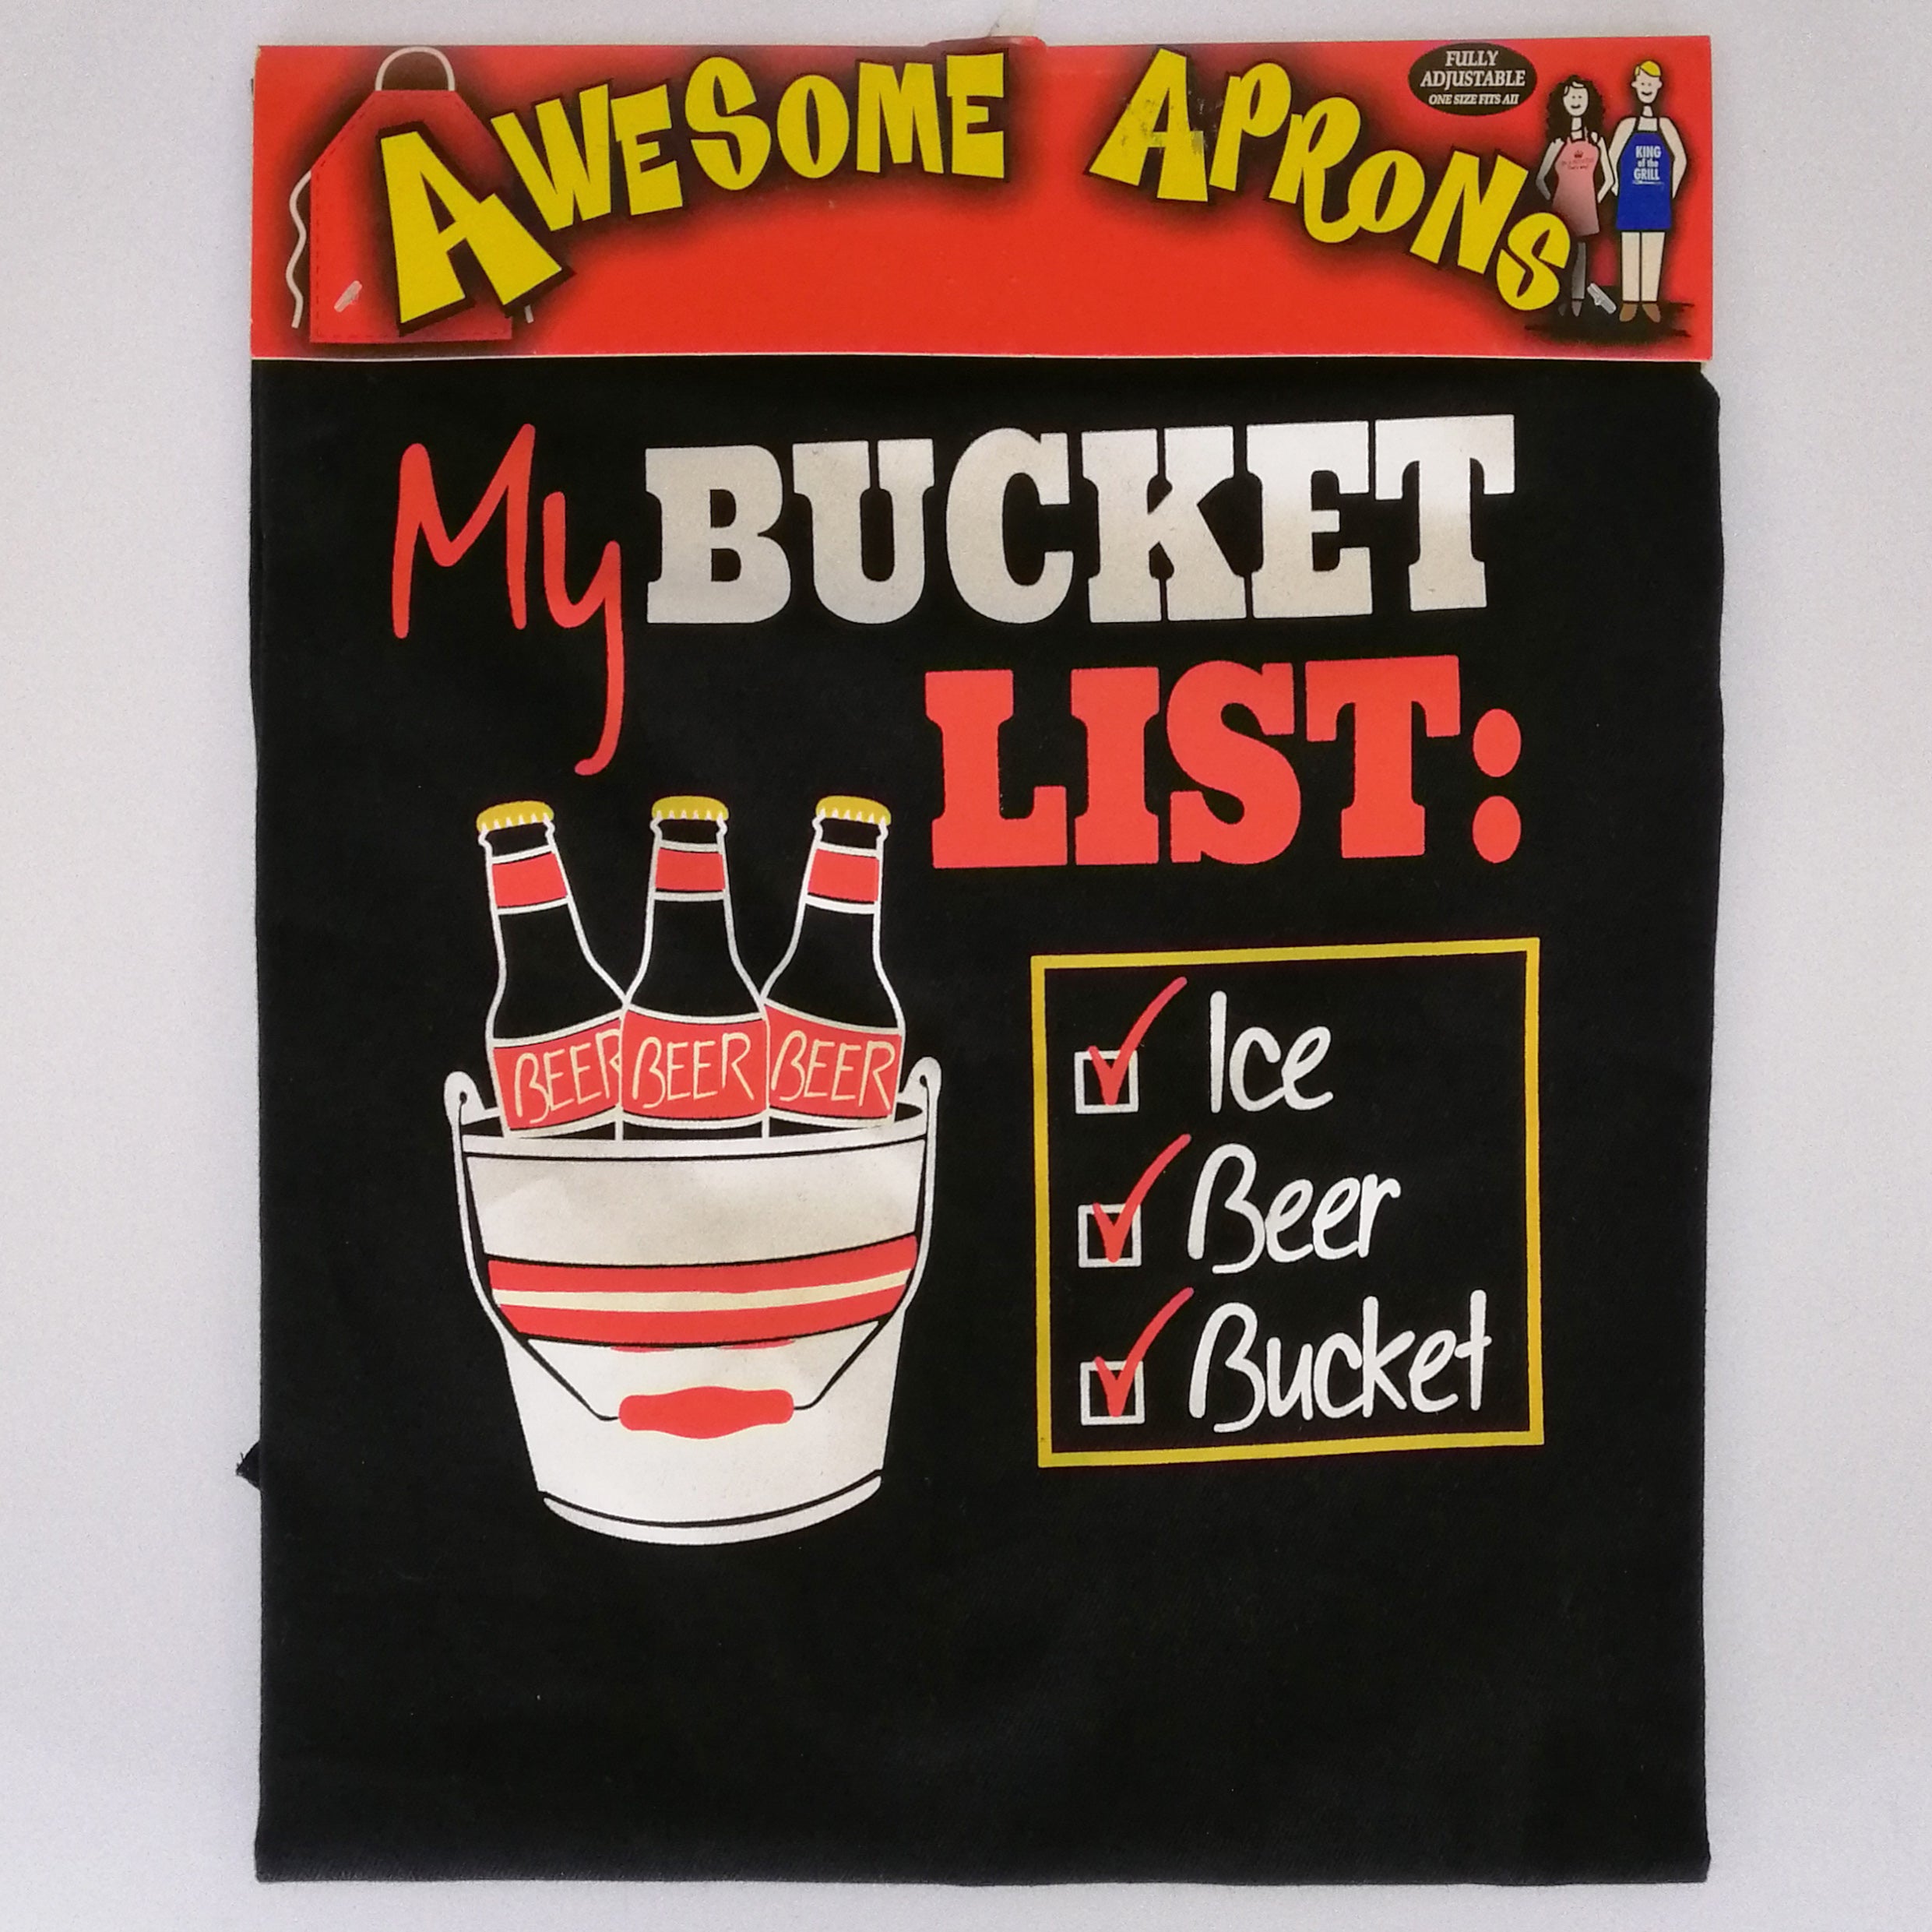 AWESOME APRONS
FULLY
ADJUSTABLE
ONE SIZE FITS All
KING
of the
GRILL
My BUCKET
LIST:
BEER BEER BEER
Ice
Beer
Bucket